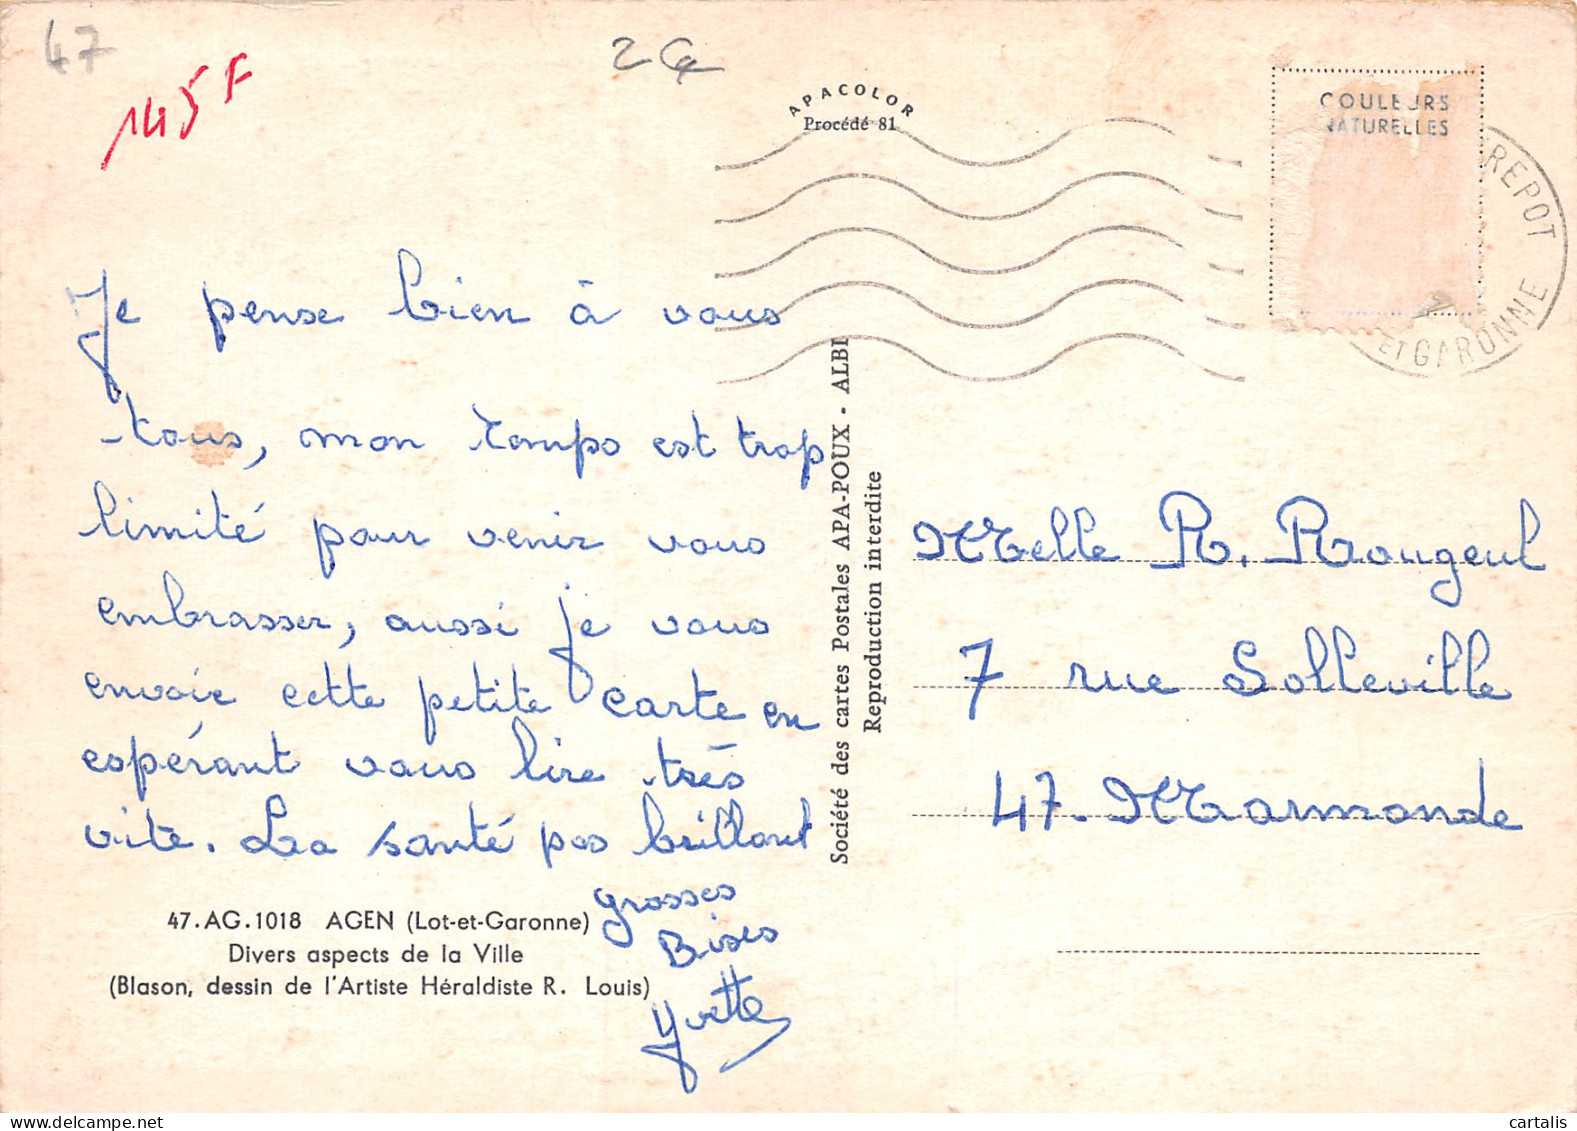 47
145 F
2
APACOLOR
Procédé 81
COULEURS
NATURELLES
REPOT
ET GARONNE
Je pense bien à vous
tous, mon temps est trop
limité pour venir vous
embrasser, aussi je vous
envoie cette petite carte en
espérant vous lire très
vite. La santé pas brillant
grosses
Bises
Yvette
47.AG.1018 AGEN (Lot-et-Garonne)
Divers aspects de la Ville
(Blason, dessin de l'Artiste Héraldiste R. Louis)
Société des cartes Postales APA-POUX - ALBI
Reproduction interdite
Melle R. Rougeul
7 rue Solleville
47. Marmande
cartalis